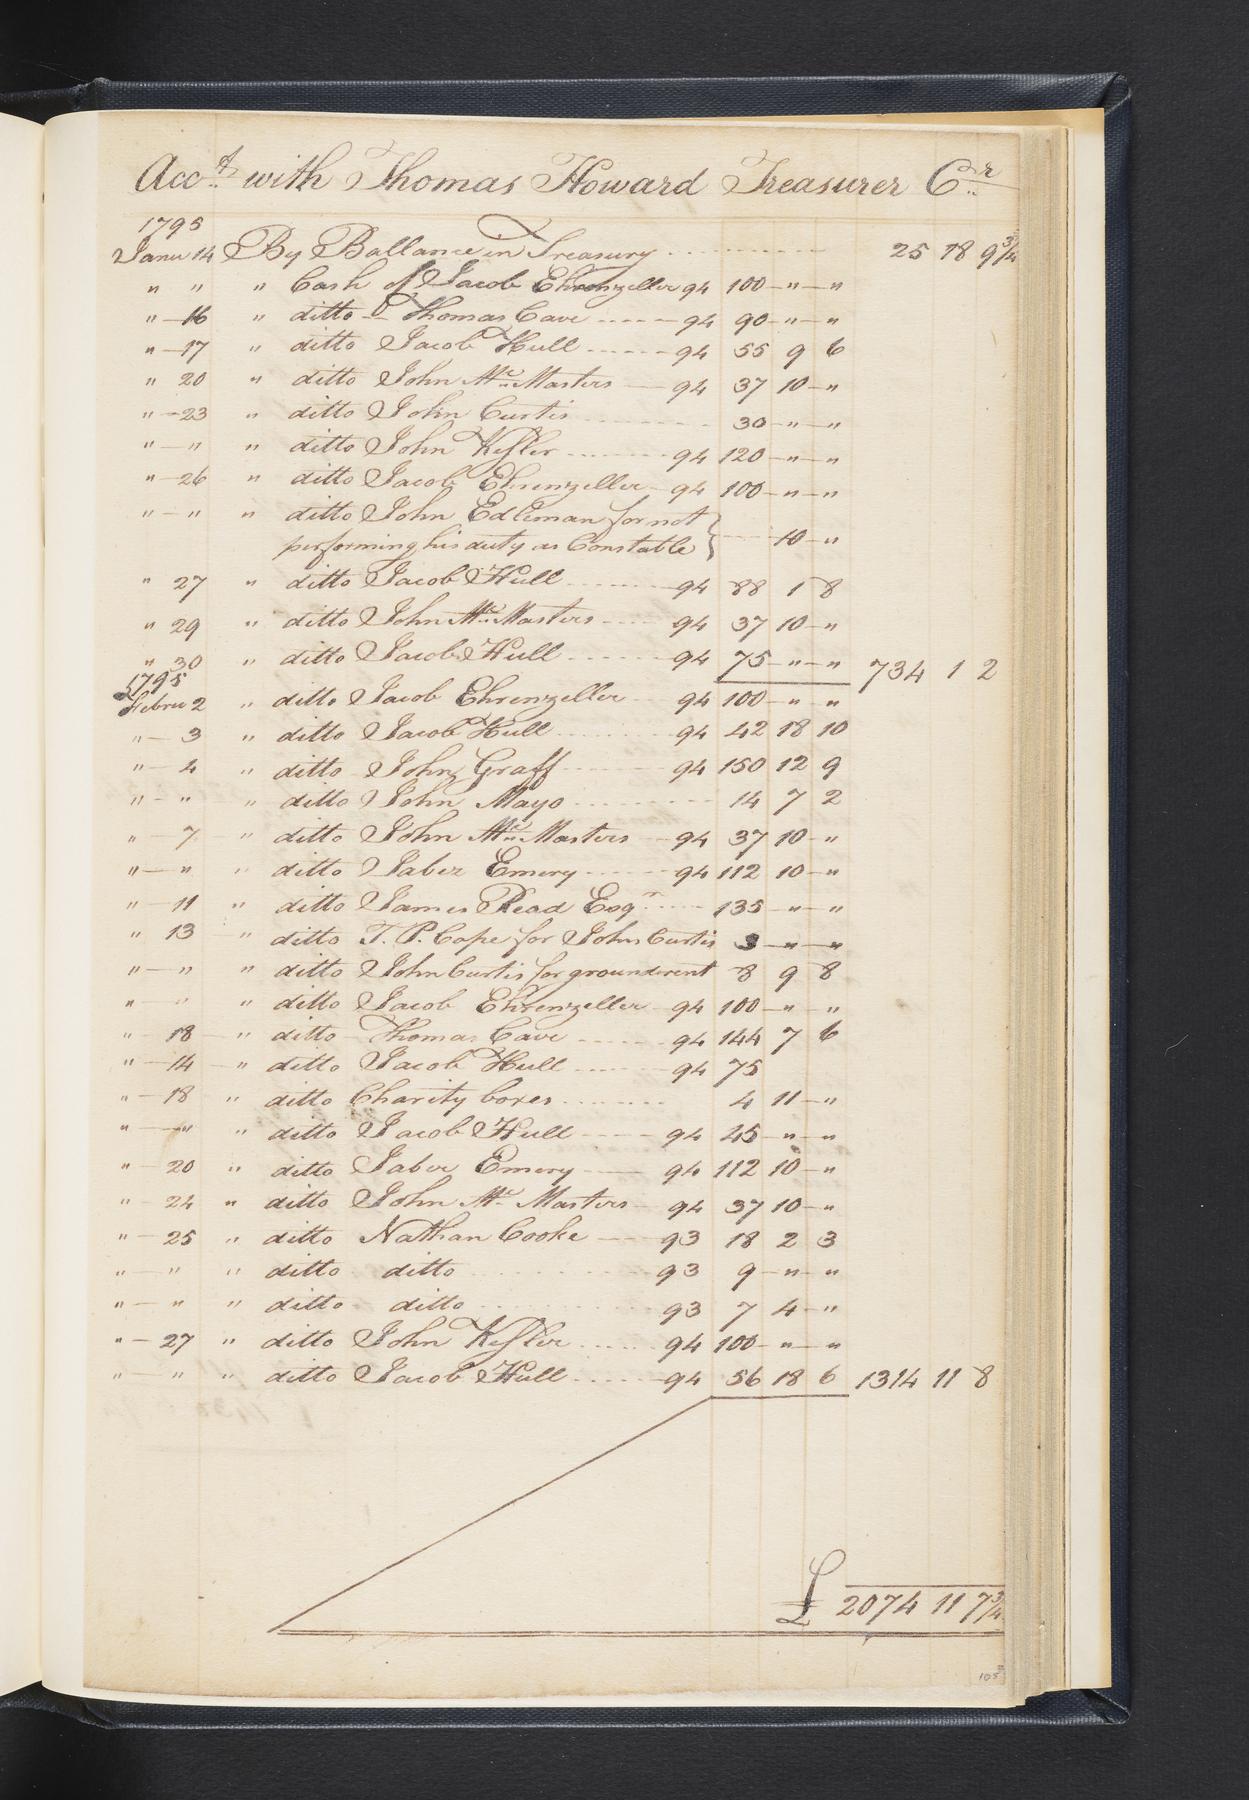 Acct. with Thomas Howard Treasurer Cr.
1795
Janu 14 By Ballance in Treasury 25 18 9 3/4
" " " Cash of Jacob Ehrenzeller 94 100 " "
" 16 " ditto Thomas Cave 94 90 " "
" 17 " ditto Jacob Hull 94 55 9 6
" 20 " ditto John Mc Masters 94 37 10 "
" 23 " ditto John Curtis 30 " "
" " " ditto John Kesler 94 120 " "
" 26 " ditto Jacob Ehrenzeller 94 100 " "
" " " ditto John Edleman for not
performing his duty as Constable 10 "
" 27 " ditto Jacob Hull 94 88 1 8
" 29 " ditto John Mc Masters 94 37 10 "
" 30 " ditto Jacob Hull 94 75 " " 734 1 2
1795
Febru 2 " ditto Jacob Ehrenzeller 94 100 " "
" 3 " ditto Jacob Hull 94 42 18 10
" 4 " ditto John Graff 94 150 12 9
" " " ditto John Mayo 14 7 2
" 7 " ditto John Mc Masters 94 37 10 "
" " " ditto Jabez Emery 94 112 10 "
" 11 " ditto James Read Esqr 135 " "
" 13 " ditto T. P. Cope for John Curtis 3 " "
" " " ditto John Curtis for groundrent 8 9 8
" " " ditto Jacob Ehrenzeller 94 100 " "
" 18 " ditto Thomas Cave 94 144 7 6
" 14 " ditto Jacob Hull 94 75
" 18 " ditto Charity boxes 4 11 "
" " " ditto Jacob Hull 94 45 " "
" 20 " ditto Jabez Emery 94 112 10 "
" 24 " ditto John Mc Masters 94 37 10 "
" 25 " ditto Nathan Cooke 93 18 2 3
" " " ditto ditto 93 9 " "
" " " ditto ditto 93 7 4 "
" 27 " ditto John Kesler 94 100 " "
" " " ditto Jacob Hull 94 56 18 6 1314 11 8
£ 2074 11 7 3/4
105